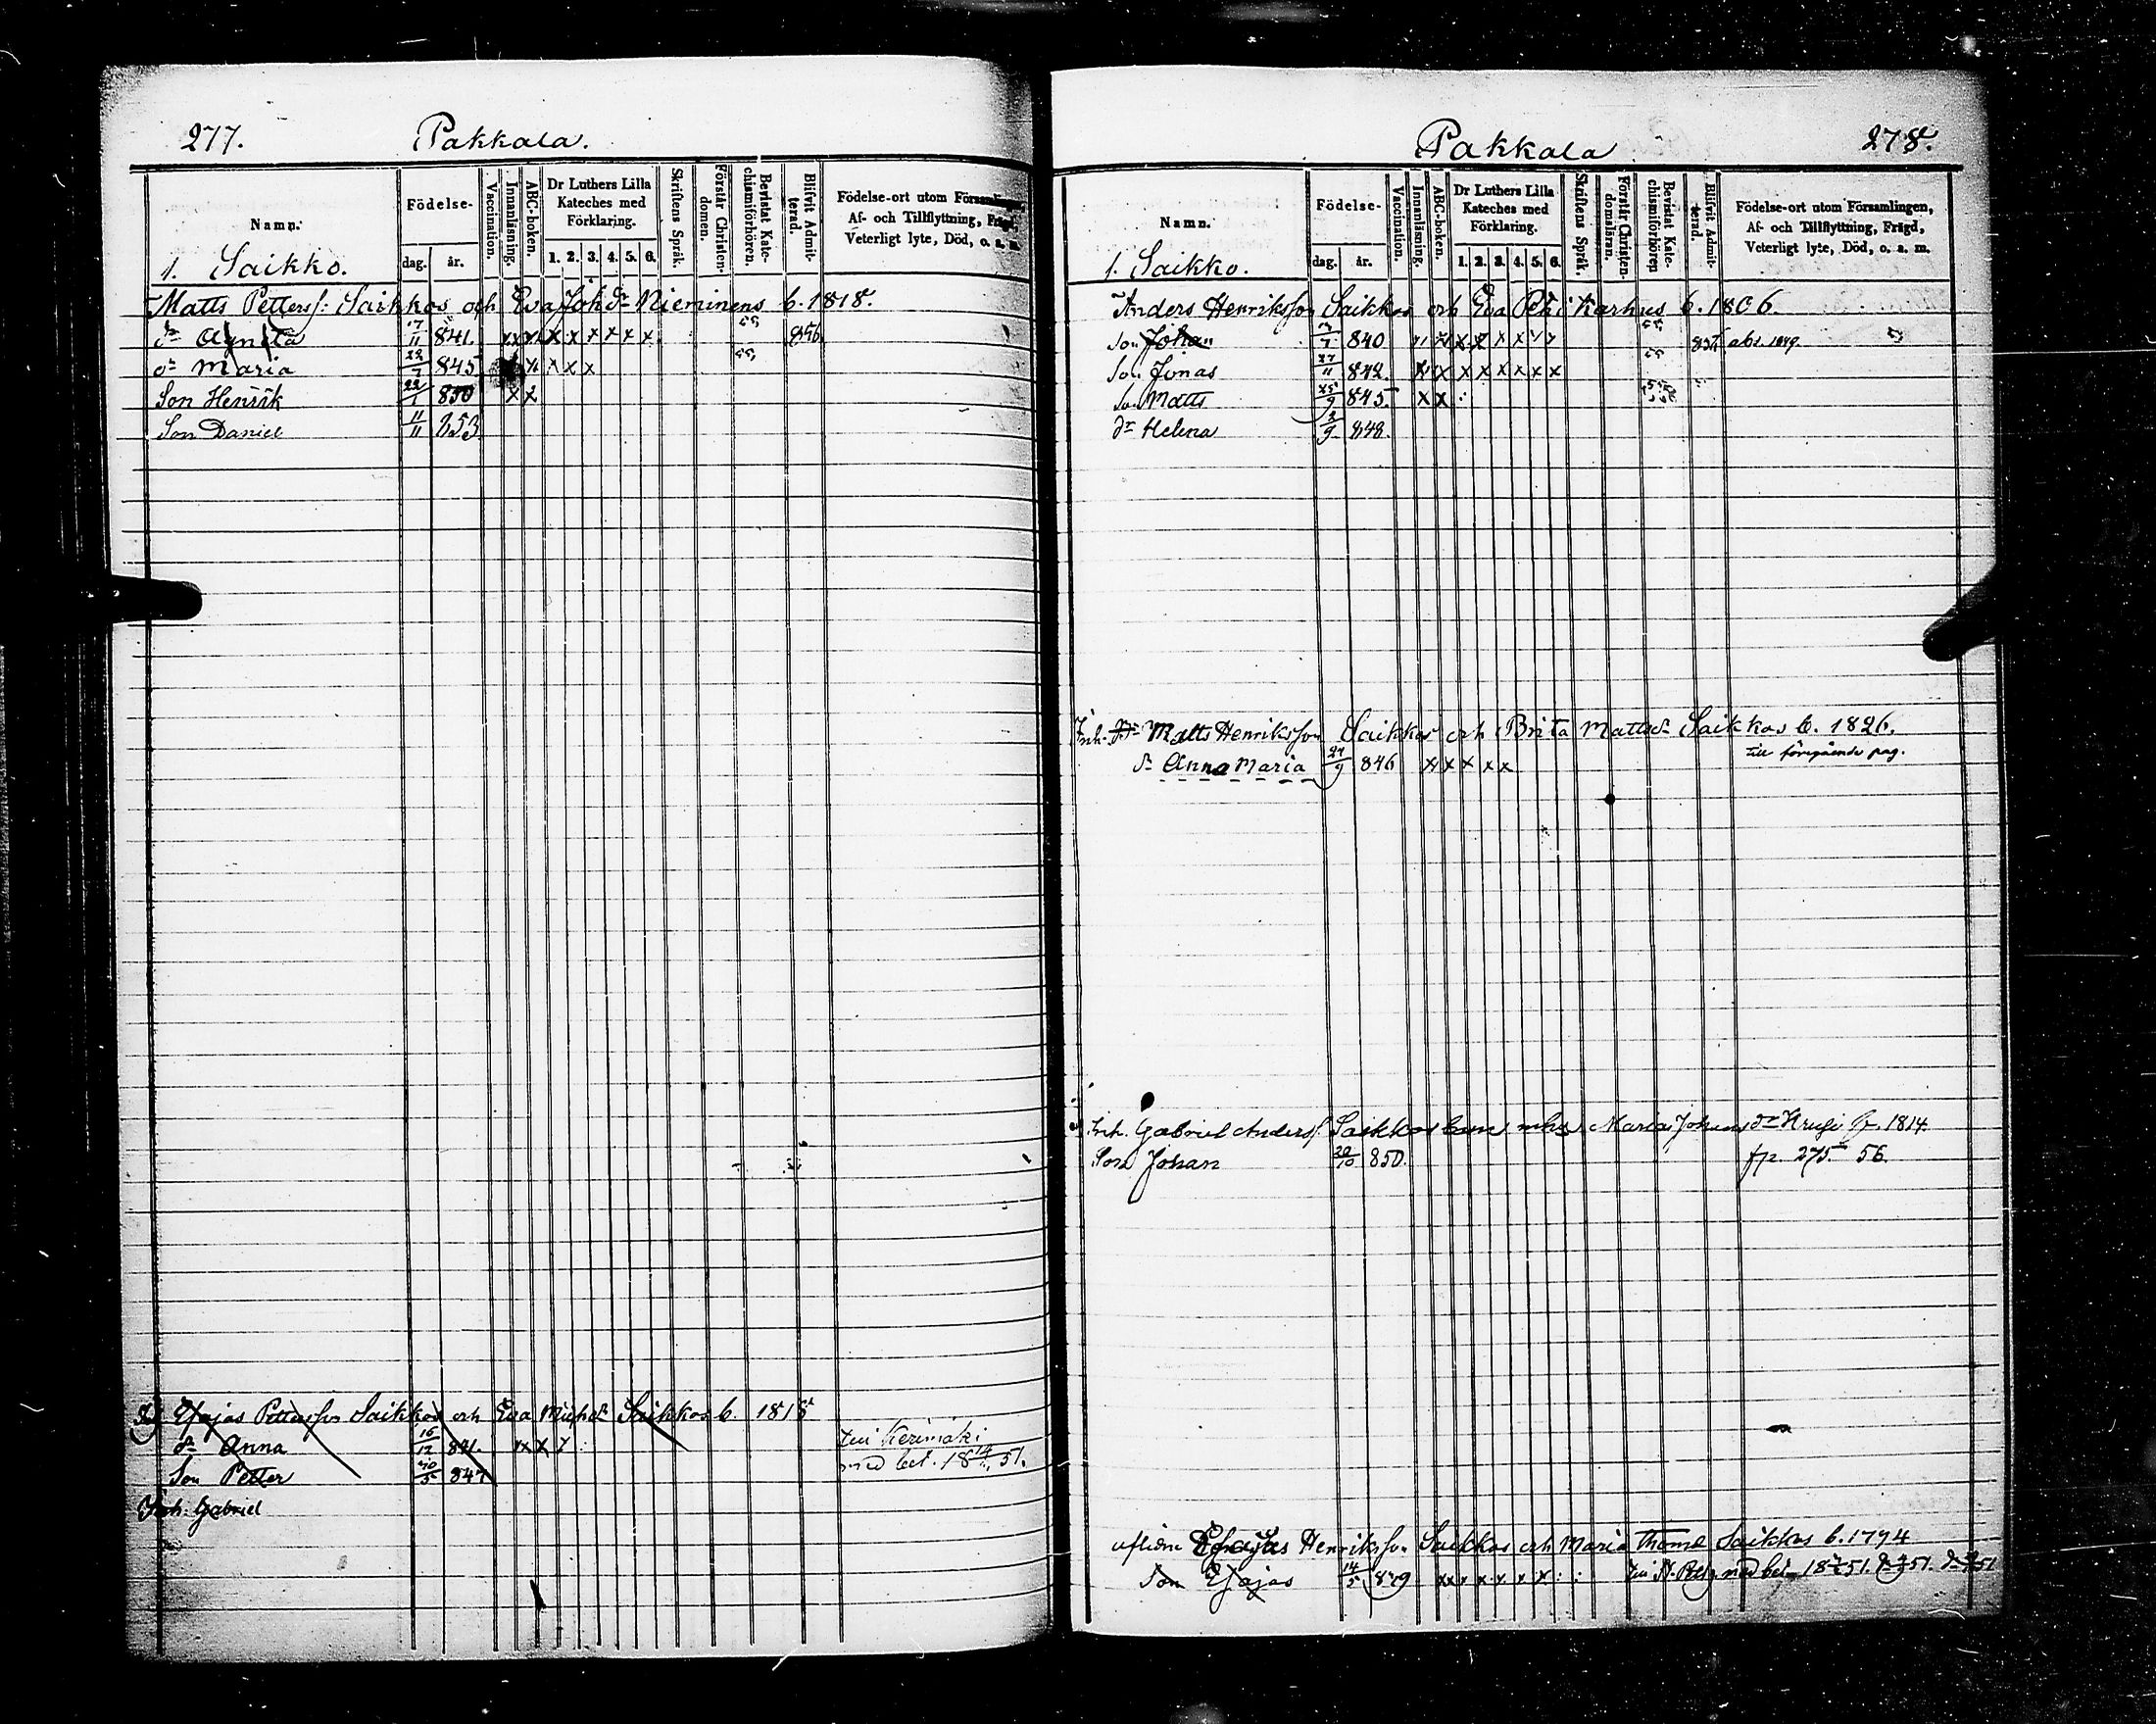 277. Pakkala.
Namn.
Födelse-
dag. år.
Vaccination.
Innanläsning.
ABC-boken.
Dr Luthers Lilla Kateches med Förklaring.
1. 2. 3. 4. 5. 6.
Skriftens Språk.
Förstår Christendomen.
Bevistat Katechismiförhören.
Blifvit Admitterad.
Födelse-ort utom Församlingen,
Af- och Tillflyttning, Frägd,
Veterligt lyte, Död, o. s. m.
1. Saikko.
Matts Petterss: Saikkos och Eva Joh dr Nieminens b. 1818.
dr Agneta 17/11 841. x x x x x x x x 856
dr Maria 22/7 845 x x x x
Son Henrik 22/1 850 x x
Son Daniel 11/11 853
Esajas Pettersson Saikkos och Eva Michdr Saikkos b. 1818
dr Anna 16/12 841. x x
Till Kerimäki
Son Petter 5 847
med bet. 18 51.
Inh. Gabriel
Pakkala 278.
Namn.
Födelse-
dag. år.
Vaccination.
Innanläsning.
ABC-boken.
Dr Luthers Lilla Kateches med Förklaring.
1. 2. 3. 4. 5. 6.
Skriftens Språk.
Förstår Christendomsläran.
Bevistat Katechismiförhören
Blifvit Admitterad.
Födelse-ort utom Församlingen,
Af- och Tillflyttning, Frägd,
Veterligt lyte, Död, o. s. m.
1. Saikko.
Anders Henriksson Saikkos och Eva Karhus b. 1806.
Son Johan 7 840 x x x x
Son Jonas 27/11 842. x x x x x x x x
Son Matts 25/9 845. x x
dr Helena 2/9 848.
Inh. Matts Henriksson Saikkos och Brita Mattsdr Saikkos b. 1826.
till föregående pag.
dr Anna Maria 24/9 846 x x x x x
Inh. Gabriel Anderss. Saikkos Maria Johans dr 1814.
Son Johan 20/10 850. fr. 275 56.
aflidne Esajas Henriksson Saikkos och Maria Thomd Saikkos b. 1794
Son Esajas 14/5 829 x x x x x x x